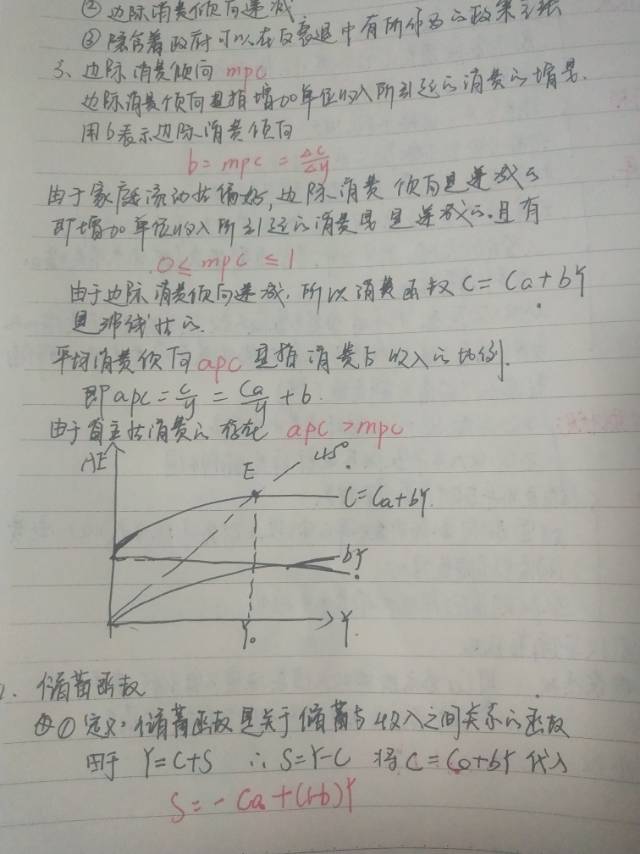 ② 边际消费倾向递减
③ 隐含着政府可以在反衰退中有所作为的政策主张
3、边际消费倾向 mpc
边际消费倾向是指增加单位收入所引起的消费的增量.
用b表示边际消费倾向
b = mpc = ΔC/ΔY
由于家庭流动性偏好,边际消费倾向是递减的
即增加单位收入所引起的消费量是递减的.且有
0 ≤ mpc ≤ 1
由于边际消费倾向递减.所以消费函数 C = Ca + bY
是非线性的.
平均消费倾向apc是指消费占收入的比例.
即 apc = C/Y = Ca/Y + b.
由于自主性消费的存在 apc > mpc
AE
E
45°
C = Ca + bY
bY
Y₀
Y.
储蓄函数
① 定义:储蓄函数是关于储蓄与收入之间关系的函数
由于 Y = C + S ∴ S = Y - C 将 C = Ca + bY 代入
S = - Ca + (1-b)Y